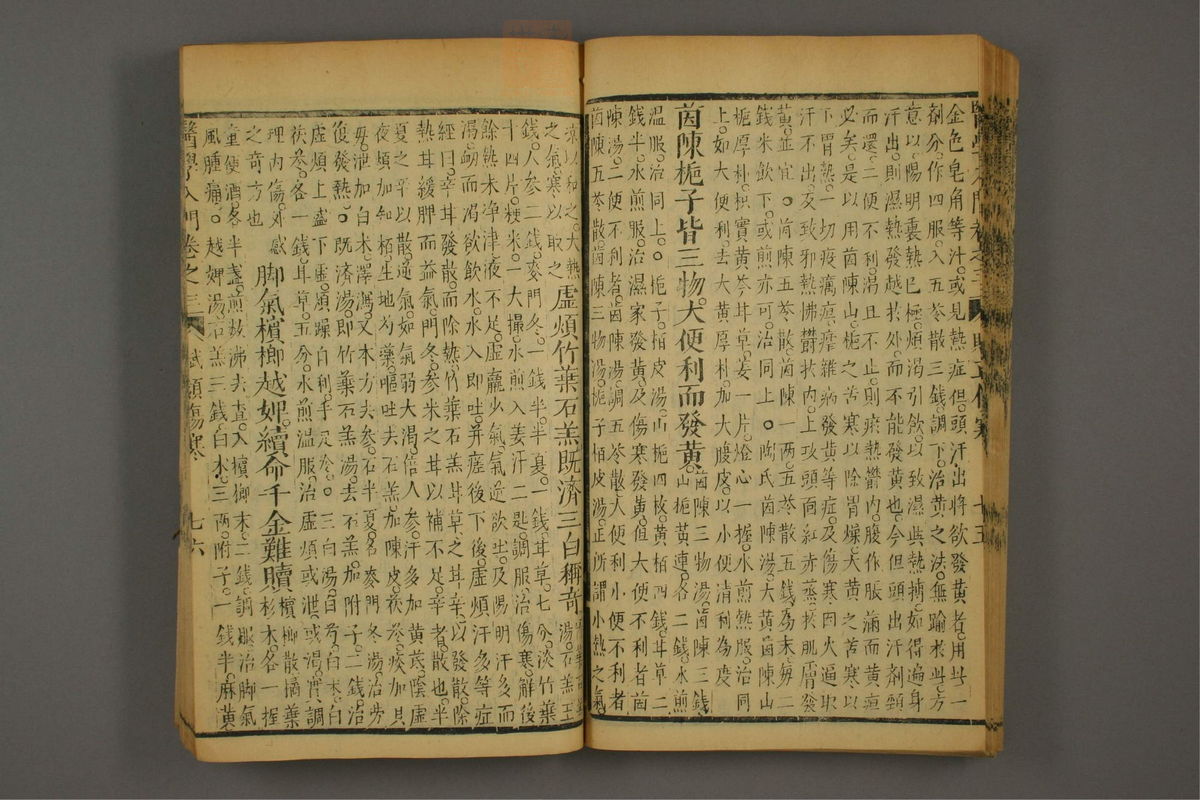 金色皂角等汁或見熱症但頭汗出將欲發黃者用此一
劑分作四服入五苓散三錢調下治黃之法無踰於此方
意以陽明裏熱已極煩渴引飲以致濕與熱搏如得遍身
汗出則濕熱發越於外而不能發黃也今但頭出汗劑頸
而還二便不利渴且不止則瘀熱鬱內腹作脹滿而黃疸
必矣是以用茵陳山梔之苦寒以除胃燥大黃之苦寒以
下胃熱一切疫癘疸瘴雜病發黃等症及傷寒因火逼取
汗不出及致邪熱怫鬱於內上攻頭面紅赤蒸於肌膚發
黃並宜茵陳五苓散茵陳一兩五苓散五錢爲末每二
錢米飲下或煎亦可治同上陶氏茵陳湯大黃茵陳山
梔厚朴枳實黃芩甘草姜一片燈心一握水煎熱服治同
上如大便利去大黃厚朴加大腹皮以小便清利為度
茵陳梔子皆三物大便利而發黃茵陳三物湯茵陳三錢
山梔黃連各二錢水煎
溫服治同上梔子栢皮湯山梔四枚黃栢四錢甘草二
錢半水煎服治濕家發黃及傷寒發黃值大便不利者茵
陳湯二便不利者茵陳湯調五苓散大便利小便不利者
茵陳五苓散茵陳三物湯梔子栢皮湯正所謂小熱之氣
凉以和之大熱之氣寒以取之
虛煩竹葉石羔既濟三白稱奇
湯石羔五
錢人參二錢麥門冬一錢半半夏一錢甘草七分淡竹葉
十四片粳米一大撮水煎入姜汁二匙調服治傷寒解後
餘熱未净津液不足虛羸少氣氣逆欲吐及陽明汗多而
渴衂而渴欲飲水水入即吐并瘥後下後虛煩汗多等症
經曰辛甘發散而除熱竹葉石羔甘草之甘辛以發散除
熱甘緩脾而益氣門冬參米之甘以補不足辛者散也半
夏之辛以散逆氣如氣弱大渴倍人參汗多加黃芪陰虛
夜煩加知栢生地芍藥嘔去石羔加陳皮茯苓痰加貝
母泄加白术澤瀉又本方去參石半夏名麥門冬湯治勞
復發熱既濟湯即竹葉石羔湯去石羔加附子二錢治
虛煩上盛下虛煩躁自利手足冷三白湯白芍白术白
茯苓各一錢甘草五分水煎溫服治虛煩或泄或渴實調
理內傷外感之奇方也
脚氣檳榔越婢續命千金難贖
檳榔散橘葉
杉木各一握
童便酒各半盞煎数沸去查入檳榔末二錢調服治脚氣
風腫痛越婢湯石羔三錢白术三兩附子一錢半麻黃
醫學入門 卷之三 賦類傷寒 七六
七五